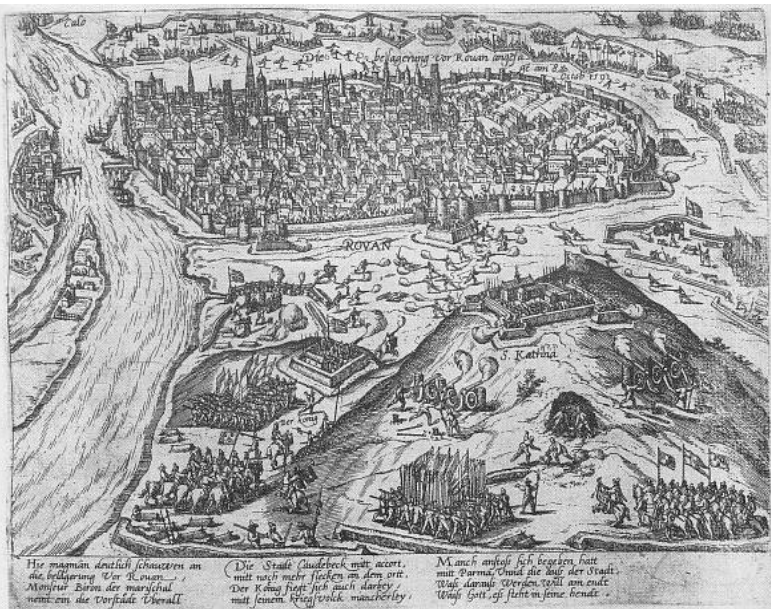 Calo
Die belagerung vor Rouan
am 8
Octob 1591
ROVAN
S. Kathina
Der könig
Hie mag man deutlich schauwen an
die belägerung Vor Rouan
Monsieur Biron der marschal
nimt ein die Vorstadt Uberall
Die Stadt Caudebeck mitt accort,
mitt noch mehr flecken an dem ort,
Der König fiegt sich auch darbey,
mitt seinem kriegsvolck mancherley,
Manch anstoss sich begeben hatt
mitt Parma Vnnd die auss der Stadt,
Wass darauss Werden will am endt
Waiss Gott, es steht in seine hendt.